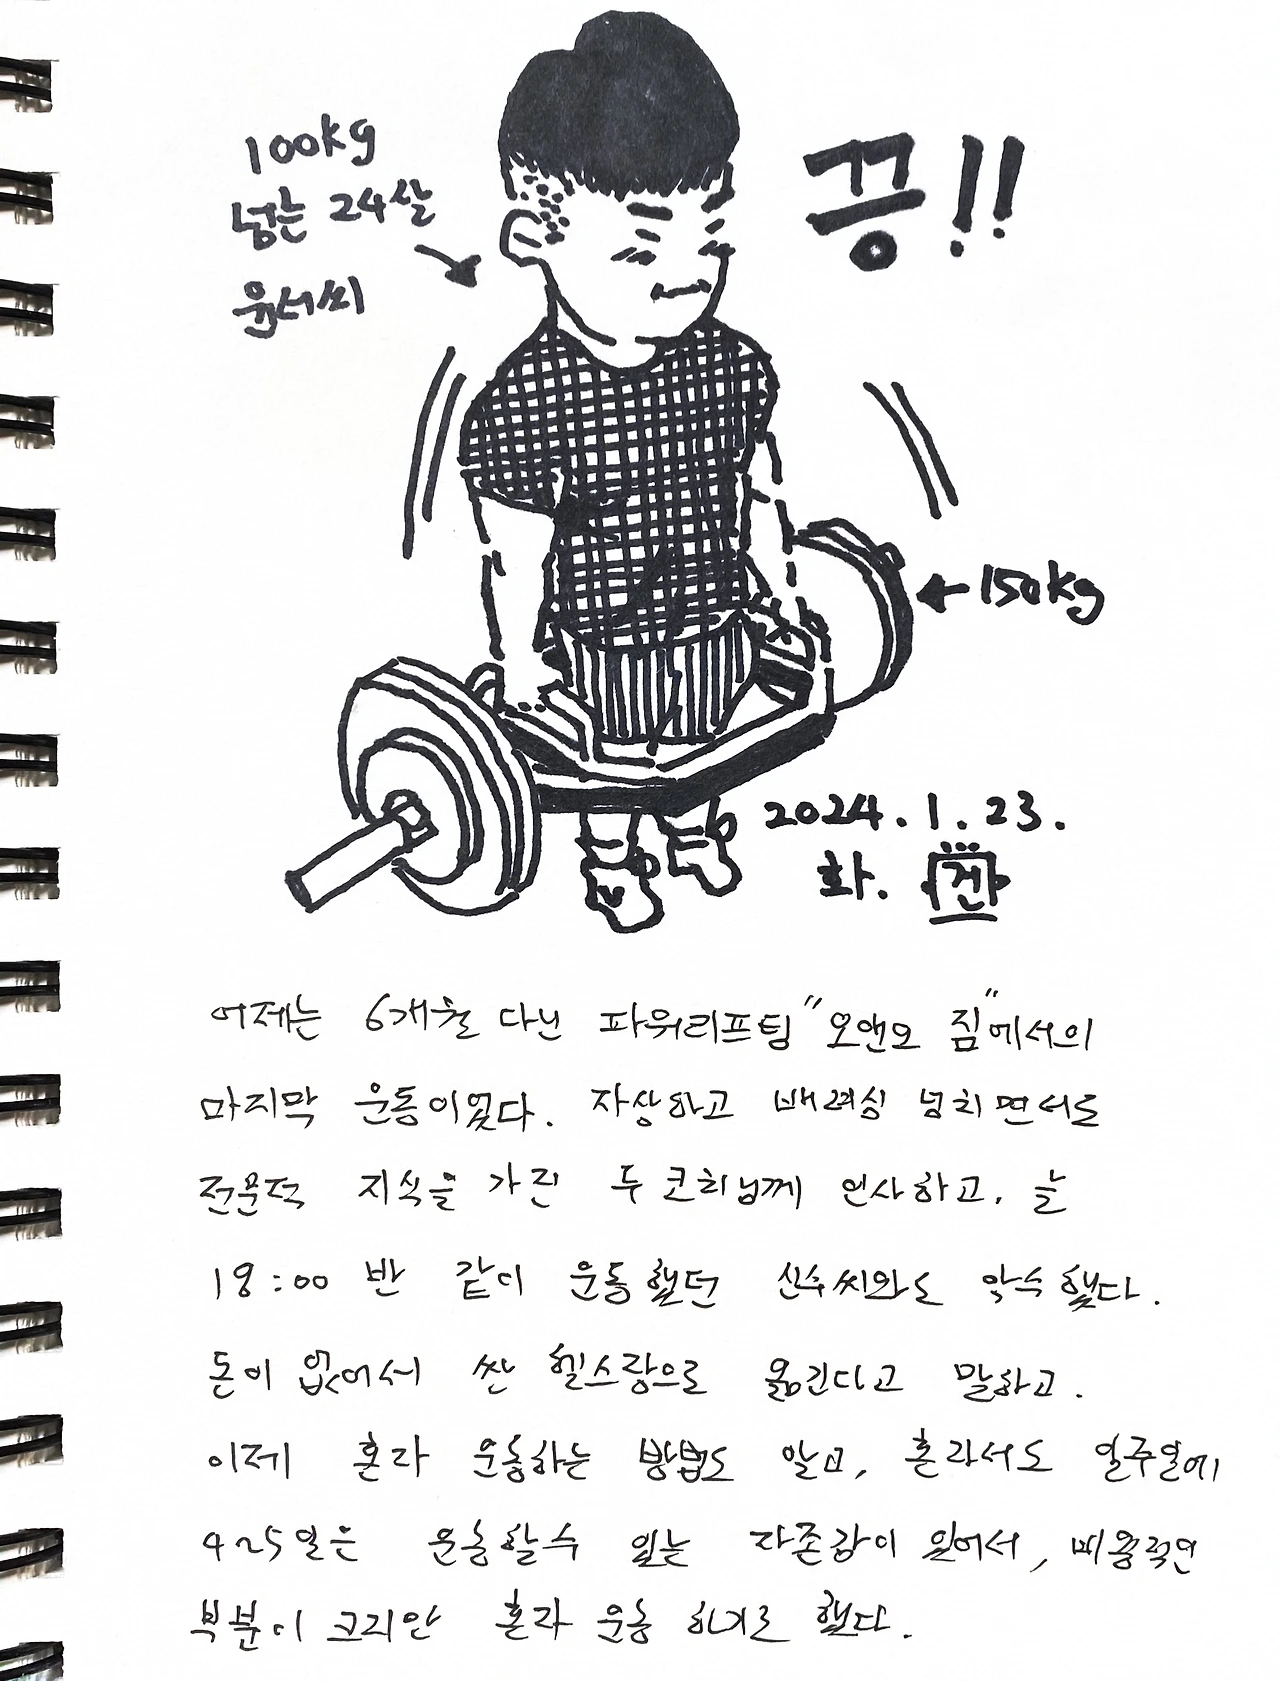 100kg
넘는 24살
윤서씨
끙!!
150kg
2024.1.23.
화. 건
어제는 6개월 다닌 파워리프팅 "오앤오 짐"에서의
마지막 운동이었다. 자상하고 배려심 넘치면서도
전문적 지식을 가진 두 코치님께 인사하고, 늘
18:00 반 같이 운동했던 신수씨와도 악수했다.
돈이 없어서 싼 헬스장으로 옮긴다고 말하고.
이제 혼자 운동하는 방법도 알고, 혼자서도 일주일에
4~5일은 운동할 수 있는 자존감이 있어서, 비용적인
부분이 크지만 혼자 운동 하기로 했다.